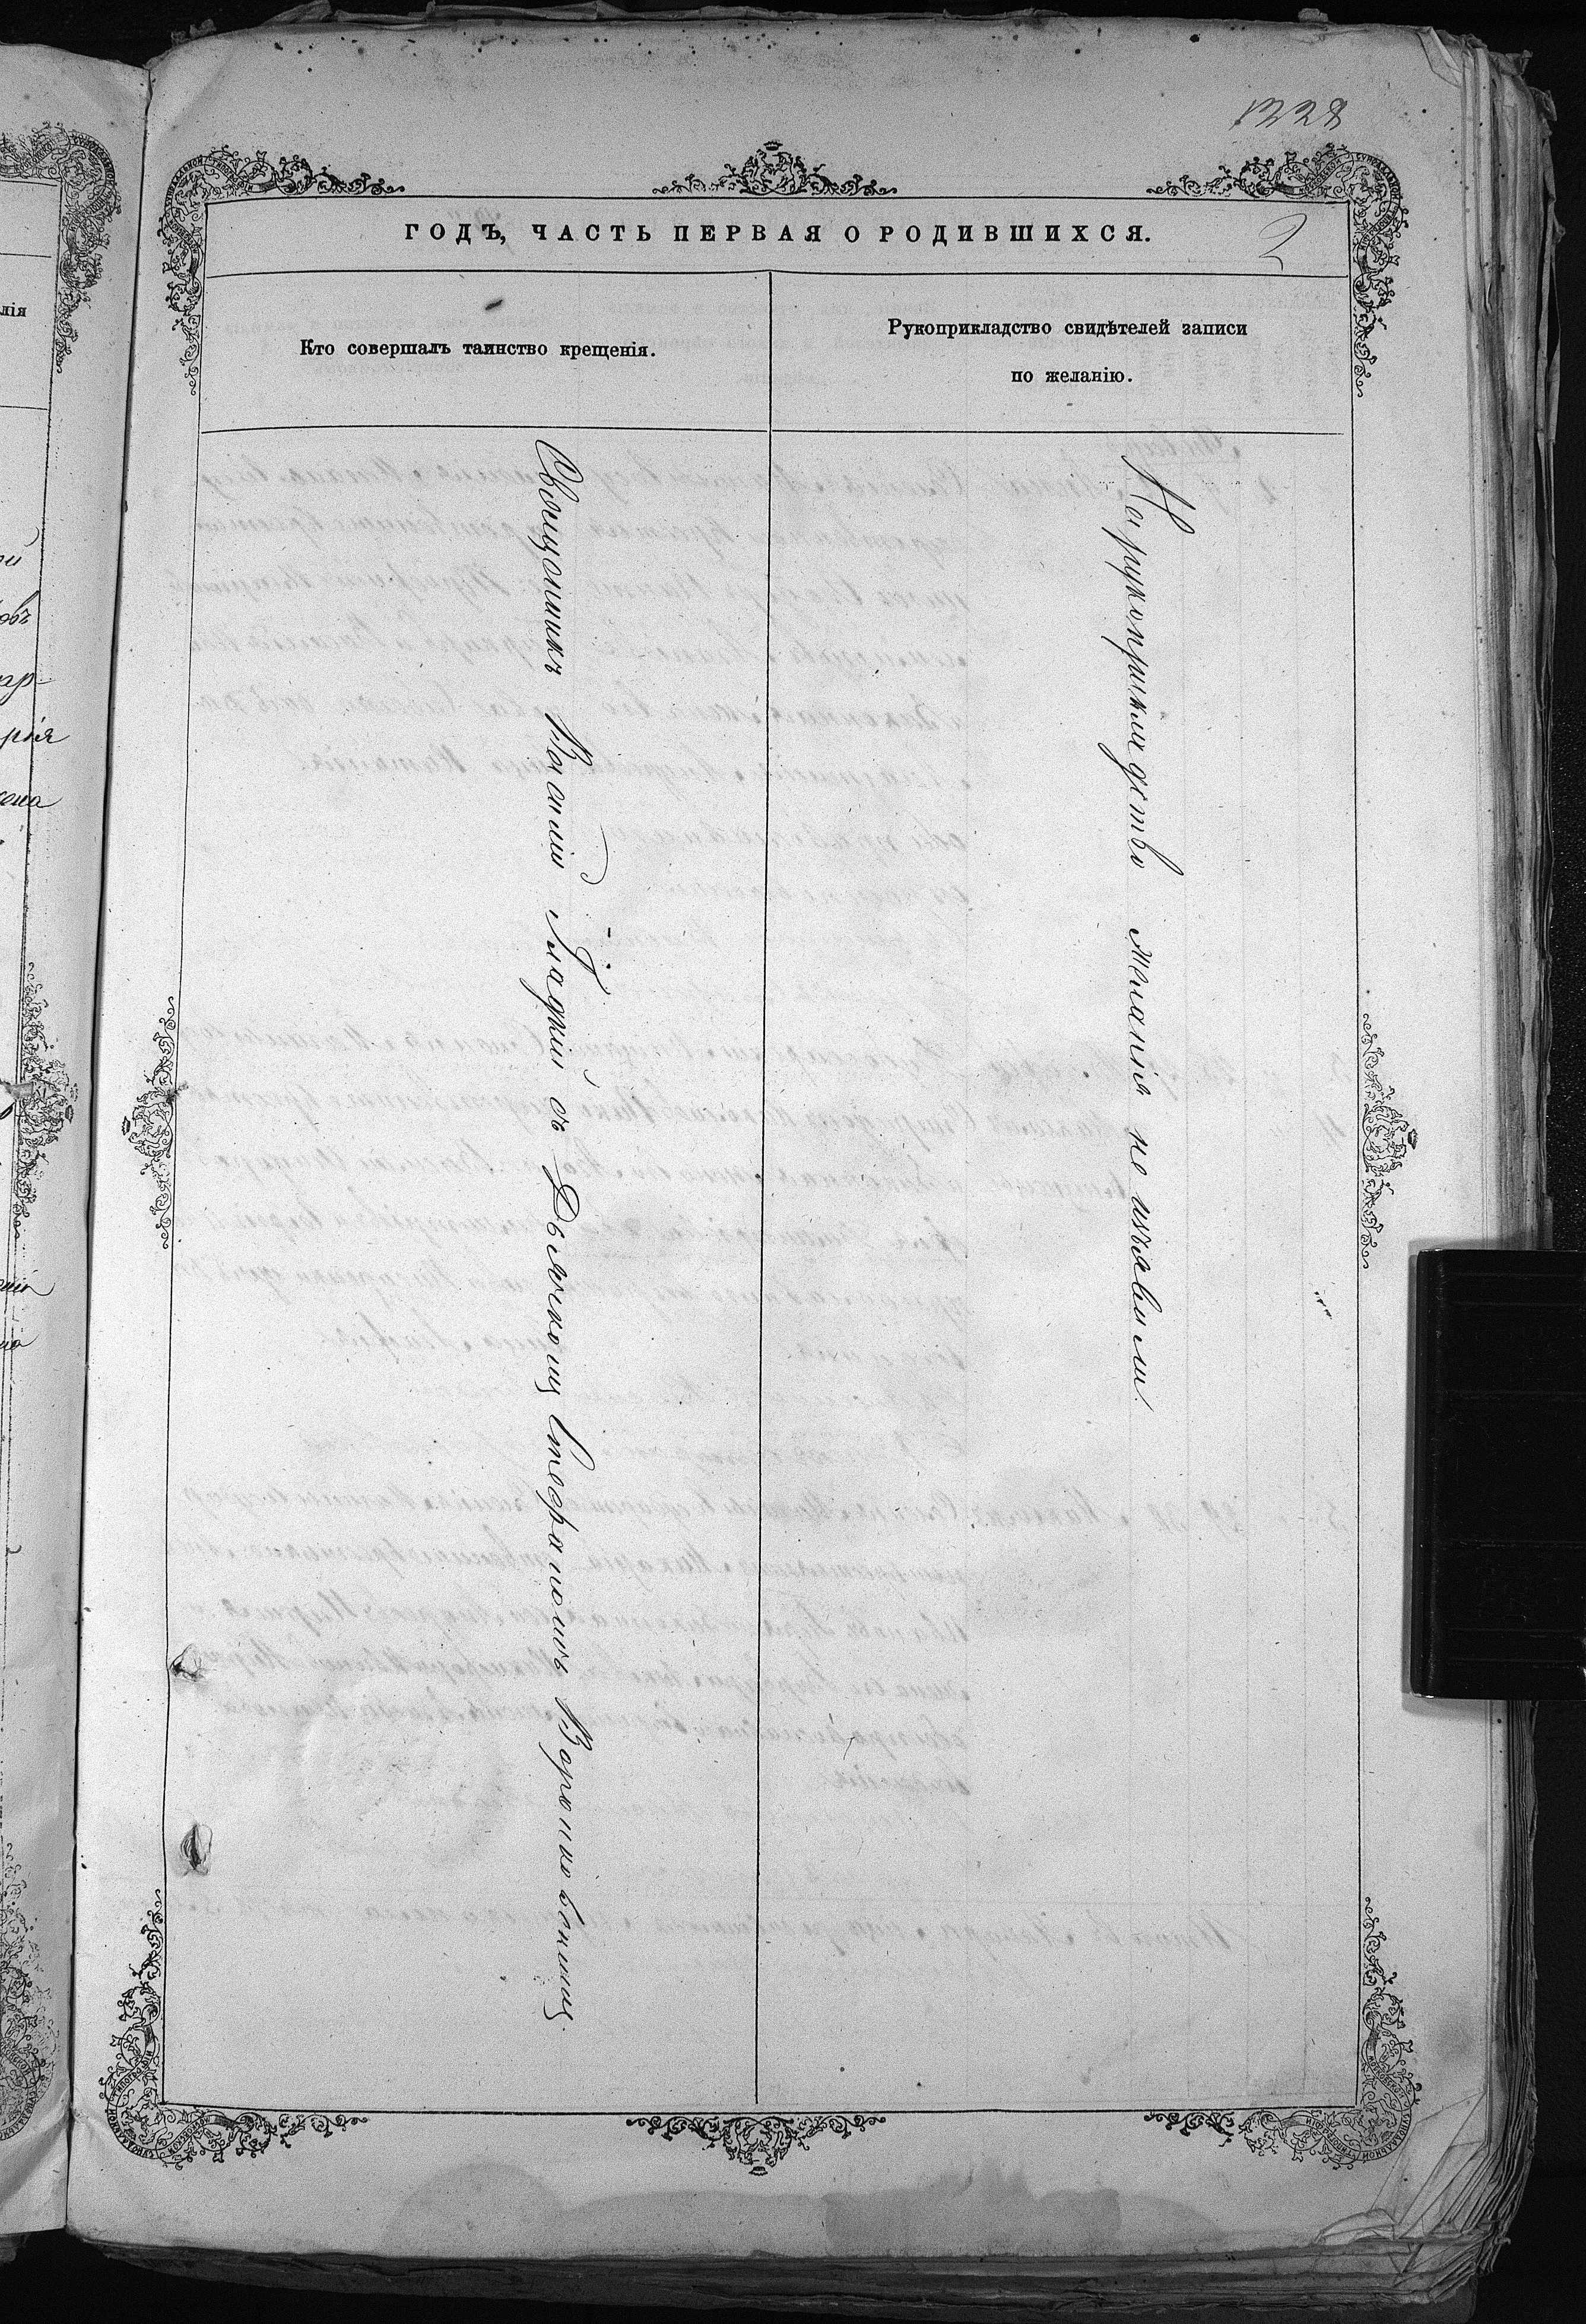 1328
ГОДЪ, ЧАСТЬ ПЕРВАЯ О РОДИВШИХСЯ.
2
Кто совершалъ таинство крещенія.
Рукоприкладство свидѣтелей записи
по желанію.
Священникъ Василій Гладкій съ Дьячкомъ Стефаномъ Воронковскимъ.
На рукоприкладство желанія не изъявили.
лія
рія